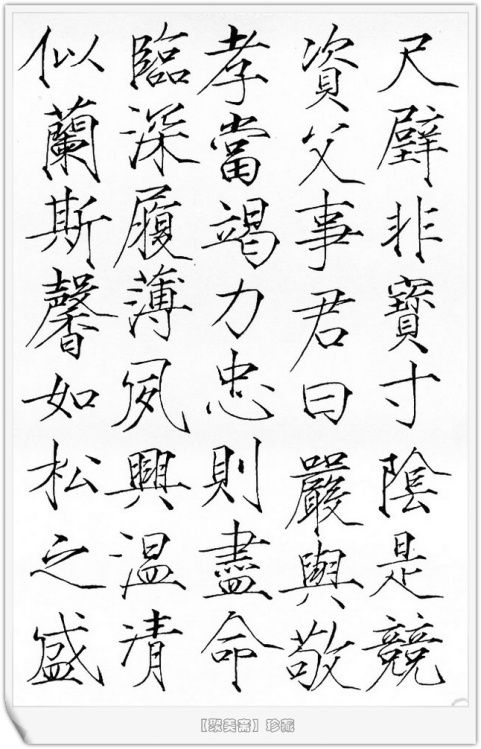 尺璧非寶寸陰是競
資父事君曰嚴與敬
孝當竭力忠則盡命
臨深履薄夙興温清
似蘭斯馨如松之盛
【聚美斋】珍藏